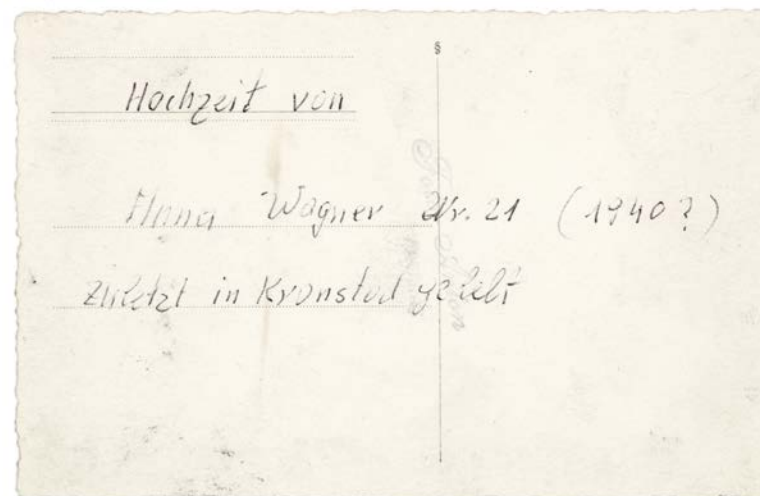 Hochzeit von
Anna Wagner Nr. 21 (1940?)
zuletzt in Kronstad gelebt